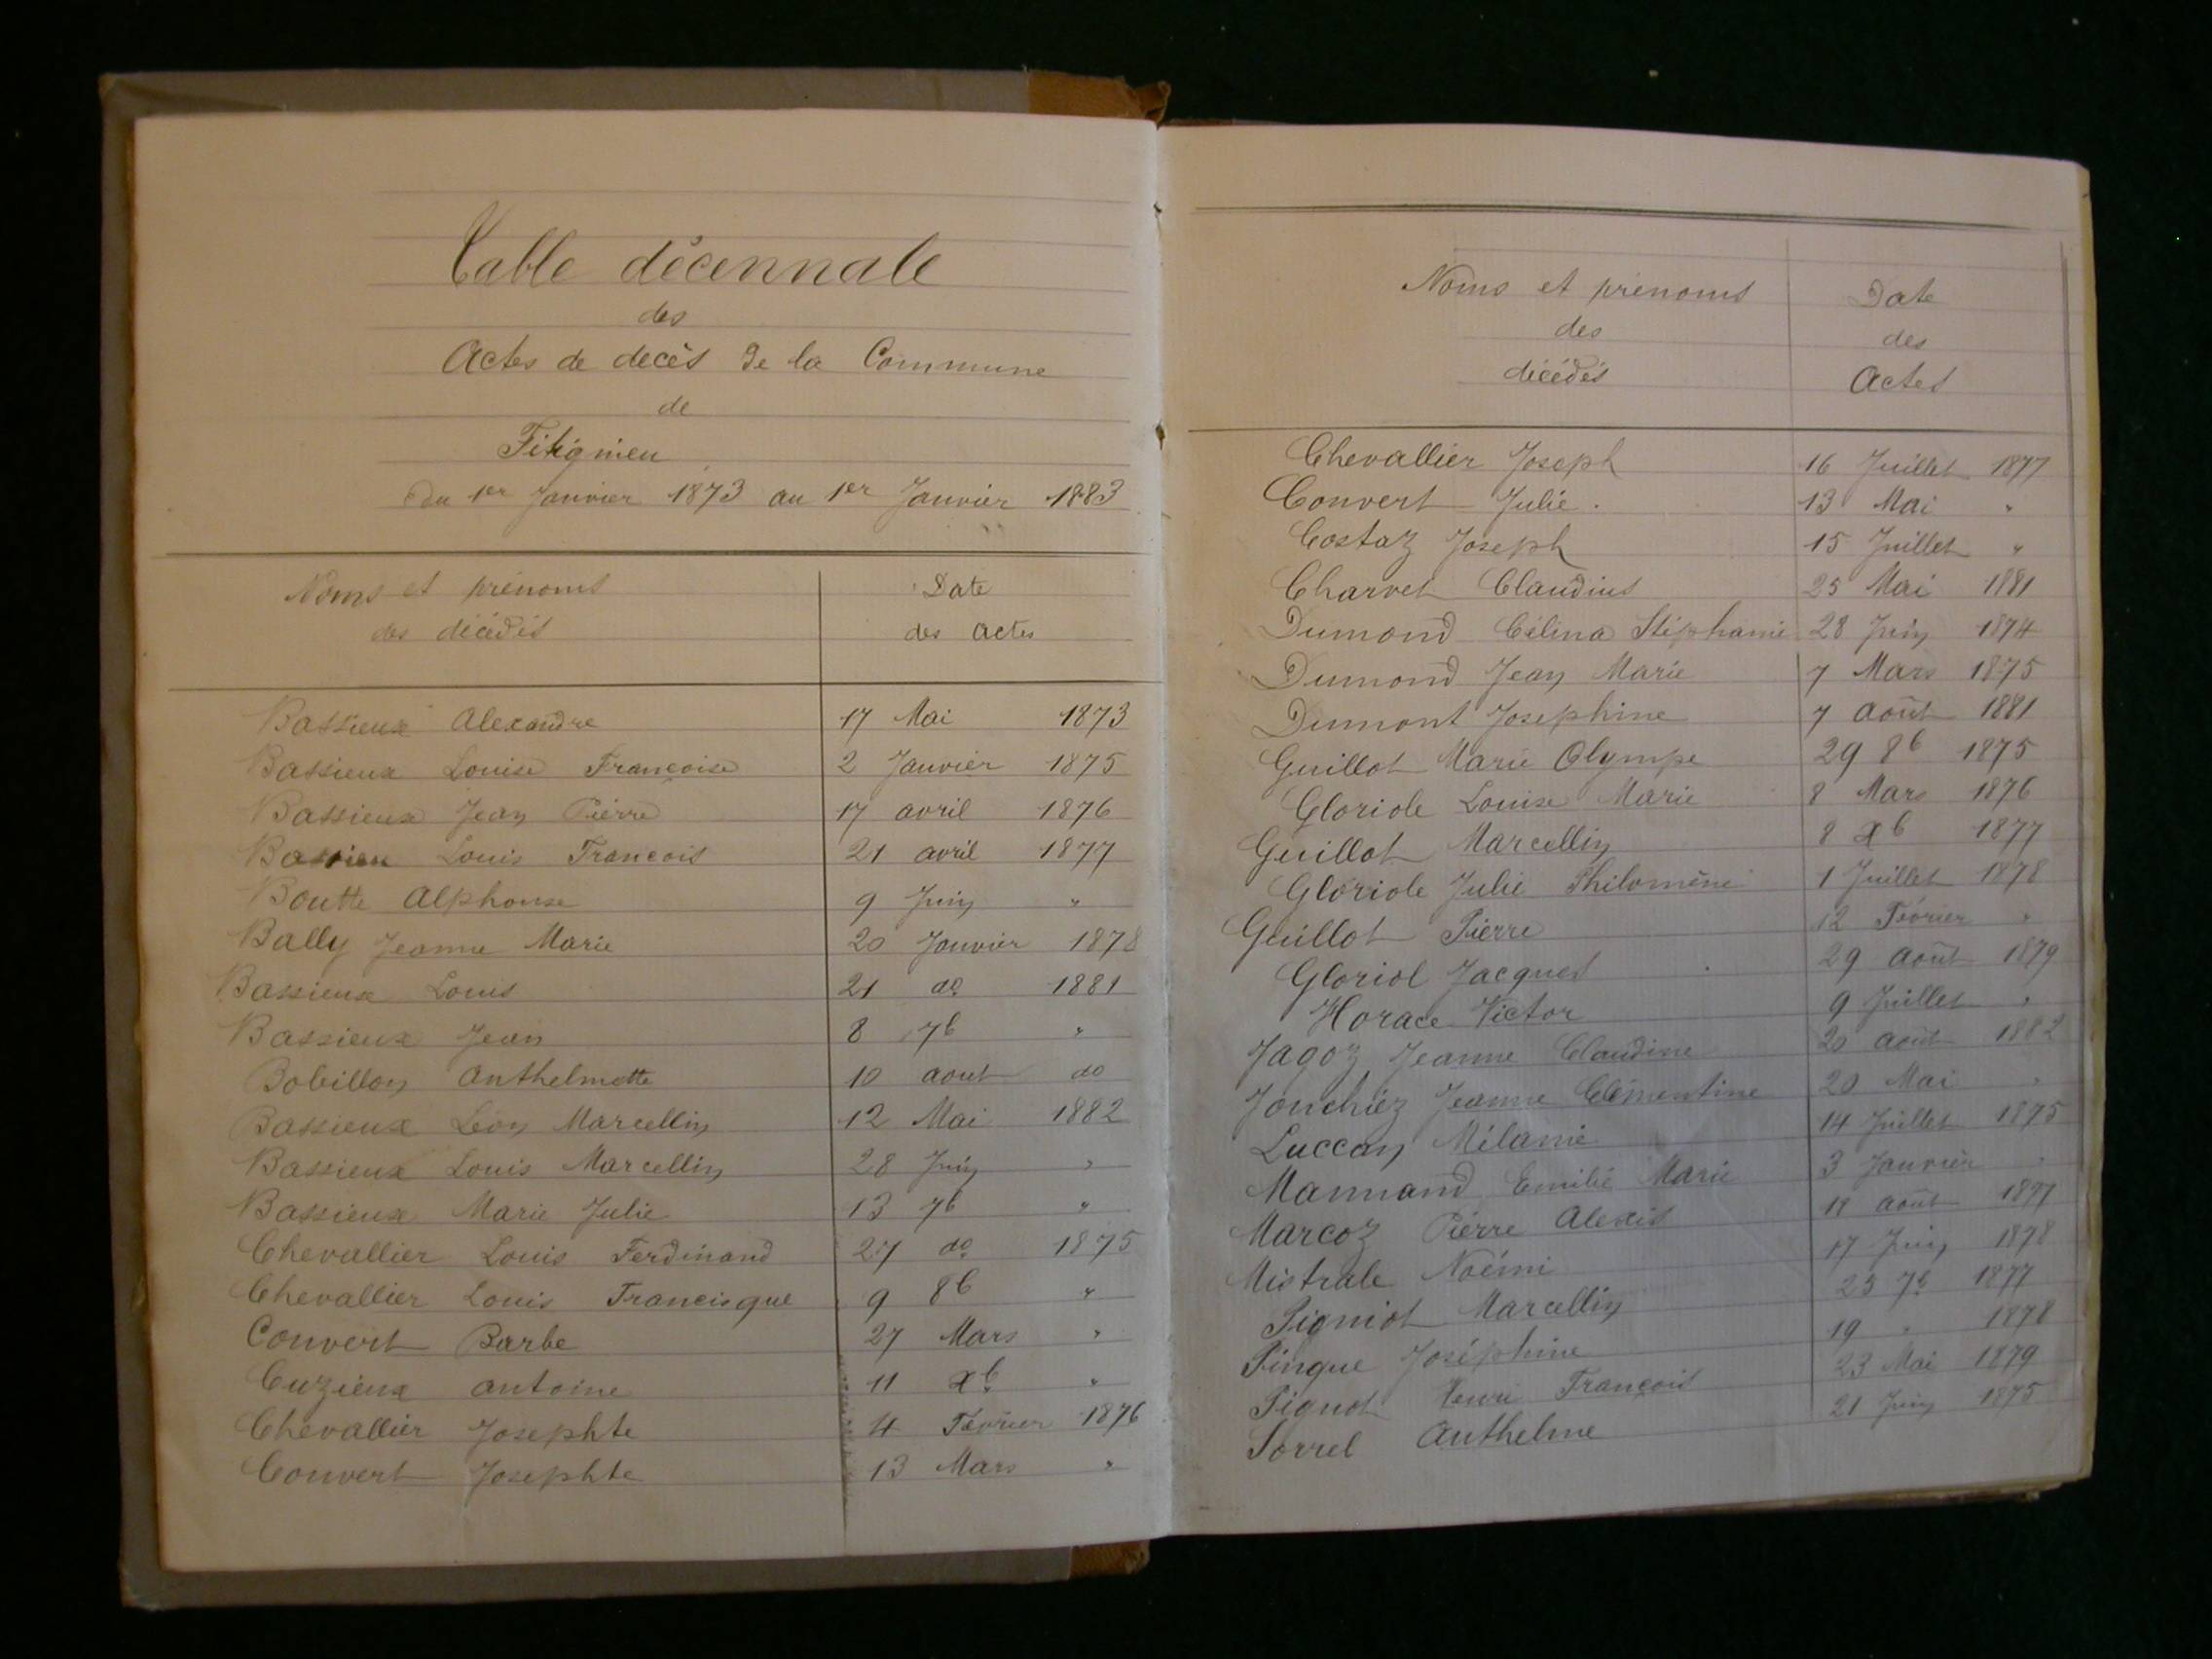 Table décennale
des
Actes de decès de la Commune
de
Fitignieu
Du 1er Janvier 1873 au 1er Janvier 1883
Noms et prénoms
des décédés
Date
des Actes
Bassieux Alexandre 17 Mai 1873
Bassieux Louise Françoise 2 Janvier 1875
Bassieux Jean Pierre 17 avril 1876
Bassieu Louis Francois 21 avril 1877
Boutte Alphonse 9 Juin "
Bally Jeanne Marie 20 Janvier 1878
Bassieux Louis 21 do 1881
Bassieux Jean 8 7b "
Bobillon Anthelmette 10 aout do
Bassieux Léon Marcellin 12 Mai 1882
Bassieux Louis Marcellin 28 Juin "
Bassieux Marie Julie 13 7b "
Chevallier Louis Ferdinand 27 do 1875
Chevallier Louis Francisque 9 8b "
Convert Barbe 27 Mars "
Cuzieux Antoine 11 Xb "
Chevallier Josephte 4 Février 1876
Convert Josephte 13 Mars "
Noms et prénoms
des
décédés
Date
des
Actes
Chevallier Joseph 16 Juillet 1877
Convert Julie . 13 Mai "
Costaz Joseph 15 Juillet "
Charvet Claudius 25 Mai 1881
Dumond Célina Stéphanie 28 Juin 1874
Dumond Jean Marie 7 Mars 1875
Dumont Josephine 7 août 1881
Guillot Marie Olympe 29 8b 1875
Gloriole Louise Marie 8 Mars 1876
Guillot Marcellin 8 Xb 1877
Gloriole Julie Philomène 1 Juillet 1878
Guillot Pierre 12 Février "
Gloriol Jacques 29 août 1879
Horace Victor 9 Juillet "
Jagoz Jeanne Claudine 20 août 1882
Jonchiéz Jeanne Clémentine 20 Mai "
Luccan Mélanie 14 Juillet 1875
Mannand Emilie Marie 3 Janvier "
Marcoz Pierre Alexis 18 août 1877
Mistrale Noémi 17 Juin 1878
Pigniot Marcellin 25 7b 1877
Pinque Joséphine 19 " 1878
Pignot Henri François 23 Mai 1879
Sorrel Anthelme 21 Juin 1875